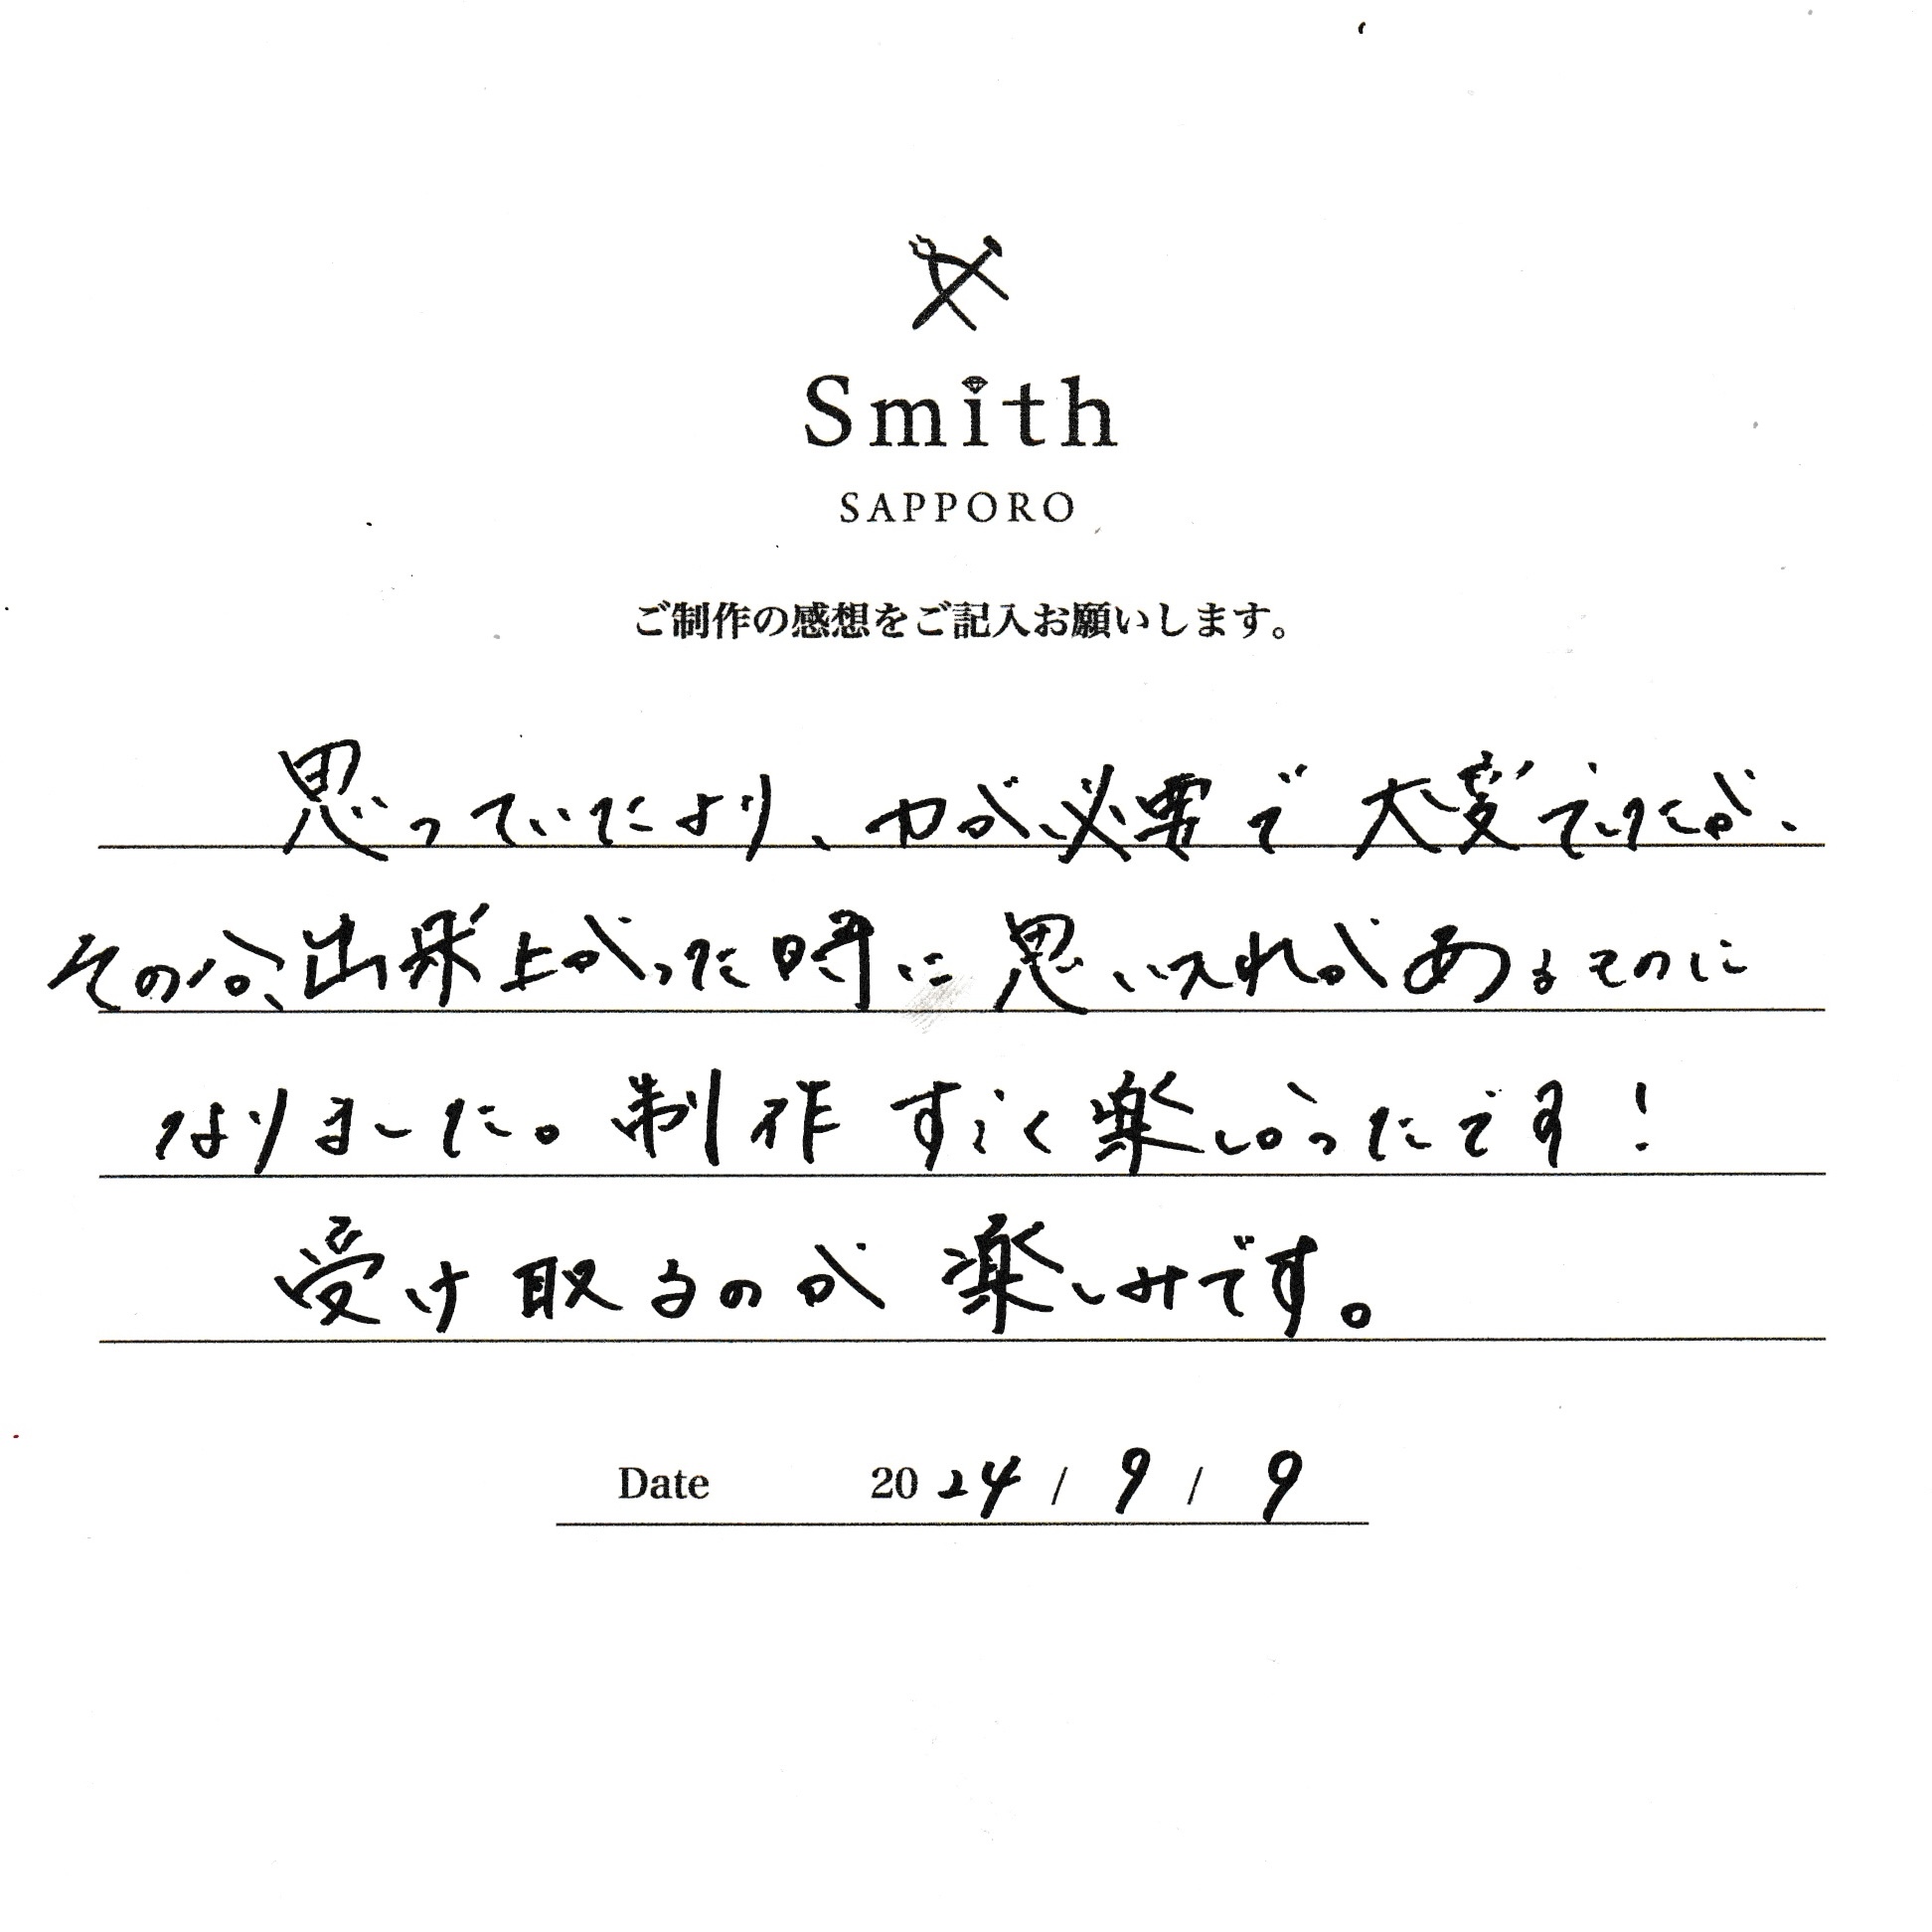 Smith
SAPPORO
ご制作の感想をご記入お願いします。
思っていたより、力が必要で大変でしたが、
その分、出来上がった時に思い入れがあるものに
なりました。制作すごく楽しかったです!
受け取るのが楽しみです。
Date 2024/9/9